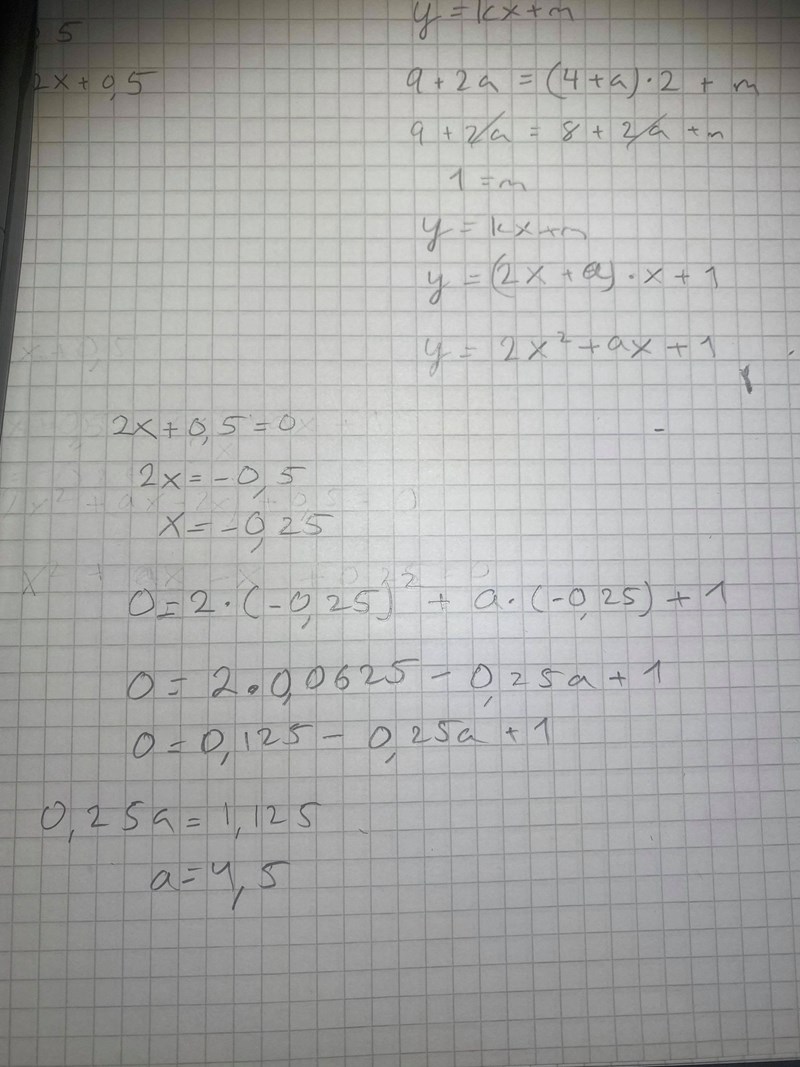 y = kx+m
5
2x+0,5
9+2a = (4+a)·2 + m
9 + 2a = 8 + 2a + m
1 = m
y = kx+m
y = (2x + a)·x + 1
y = 2x² + ax + 1
2x+0,5=0
2x=-0,5
x=-0,25
0=2·(-0,25)² + a·(-0,25)+1
0=2·0,0625-0,25a+1
0=0,125-0,25a+1
0,25a=1,125
a=4,5